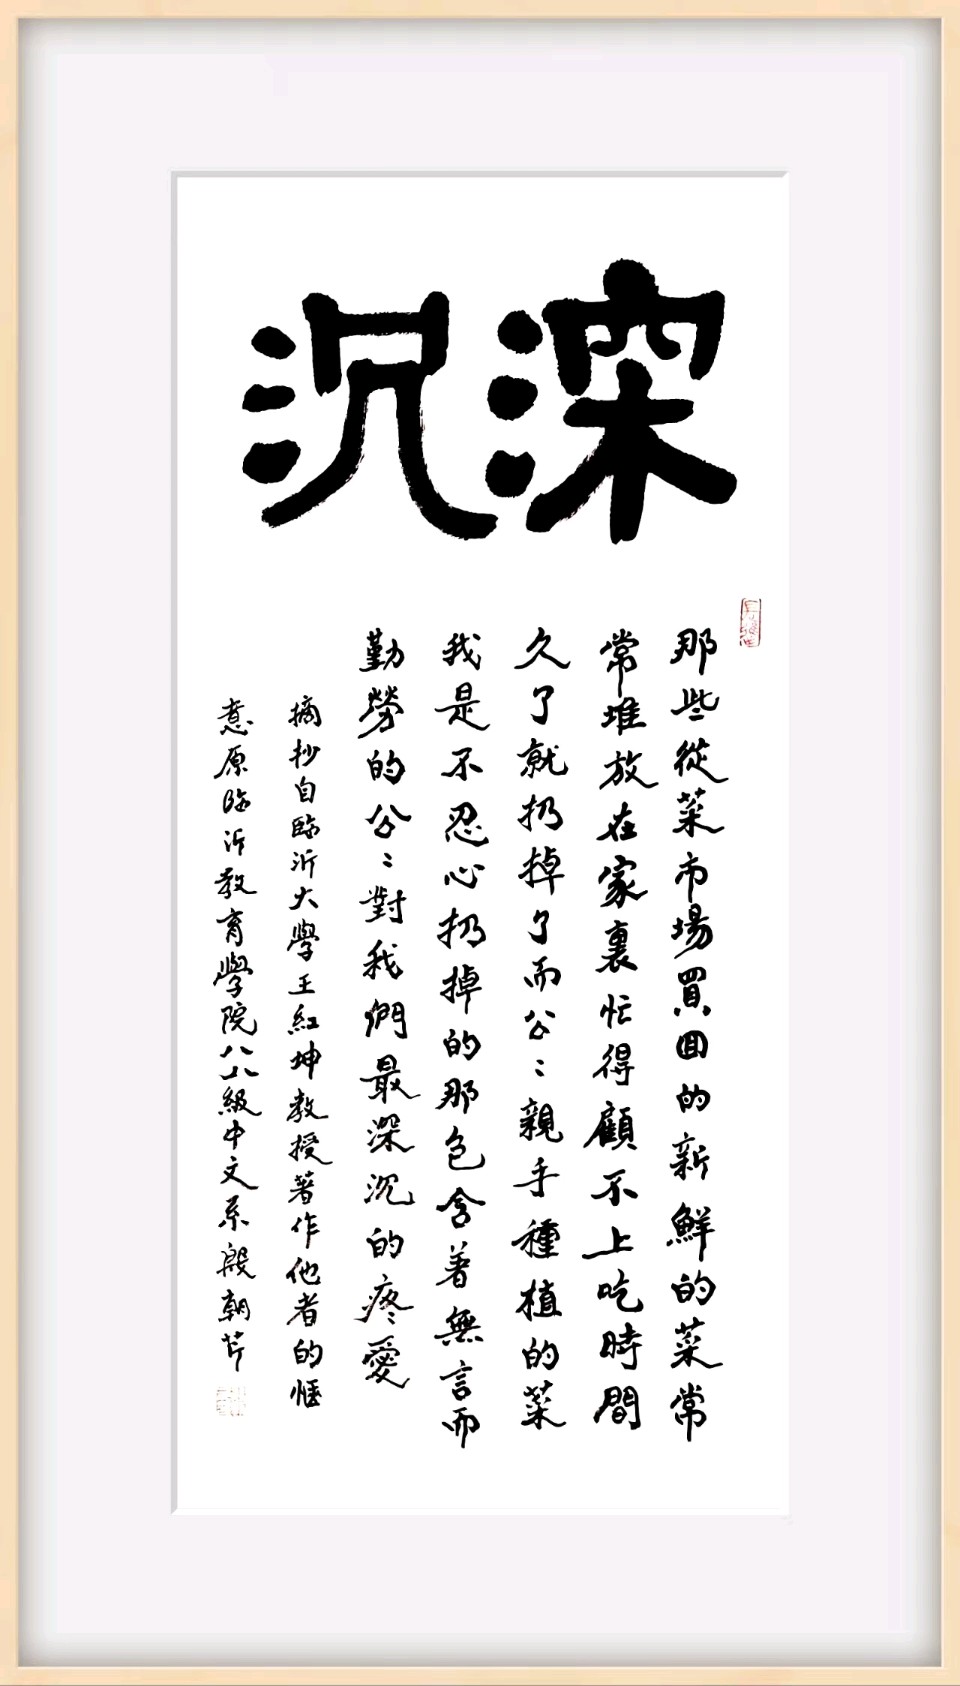 深沉
那些從菜市場買回的新鮮的菜常
常堆放在家裏忙得顧不上吃時間
久了就扔掉了而公〻親手種植的菜
我是不忍心扔掉的那色含著無言而
勤勞的公〻對我們最深沉的疼愛
摘抄自臨沂大學王紅坤教授著作他者的愜
意原臨沂教育學院八八級中文系殷朝芹